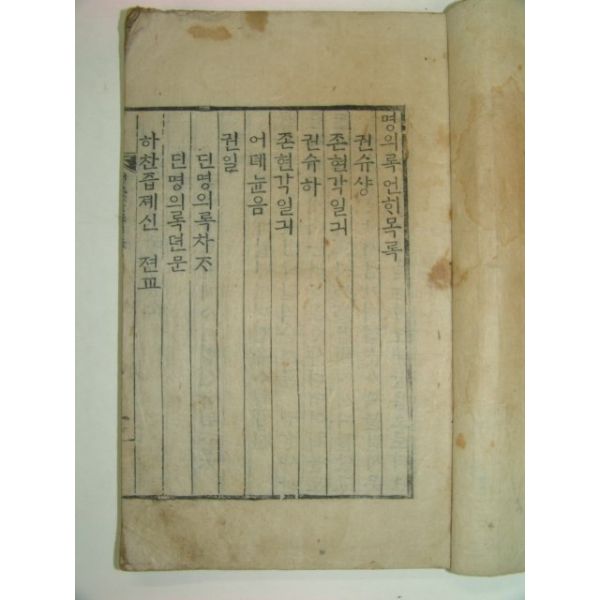 명의록언ᄒᆡ목록
권슈샹
존현각일긔
권슈하
존현각일긔
어졔륜음
권일
딘명의록차ᄌᆞ
딘명의록뎐문
하찬즙졔신 젼교